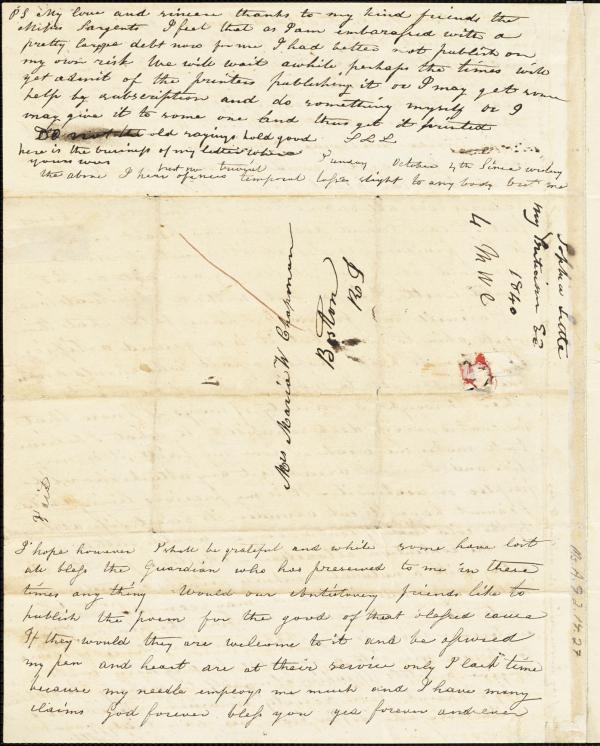 PS My love and sincere thanks to my kind friends the
Misses Sargents I feel that as I am embarassed with a
pretty large debt now for me I had better not publish on
my own risk We will wait awhile perhaps the times will
get admit of the printers publishing it or I may get some
help by subscription and do something myself or I
may give it to some one and thus get it printed
old sayings hold good SLL
here is the business of my letter
yours was Sunday October 4th Since writing
the above I hear of temporal losses slight to any body but me
Mrs Maria W Chapman
Boston
Paid
Sophia Little
my
1840
4 M W C
Ms.A.9.2.14.27
I hope however I shall be grateful and while some have lost
all bless the Guardian who has preserved to me in these
times any thing Would our Antislavery friends like to
publish the poem for the good of that blessed cause
If they would they are welcome to it and be assured
my pen and heart are at their service only I lack time
because my needle employs me much and I have many
claims God forever bless you yes forever and ever